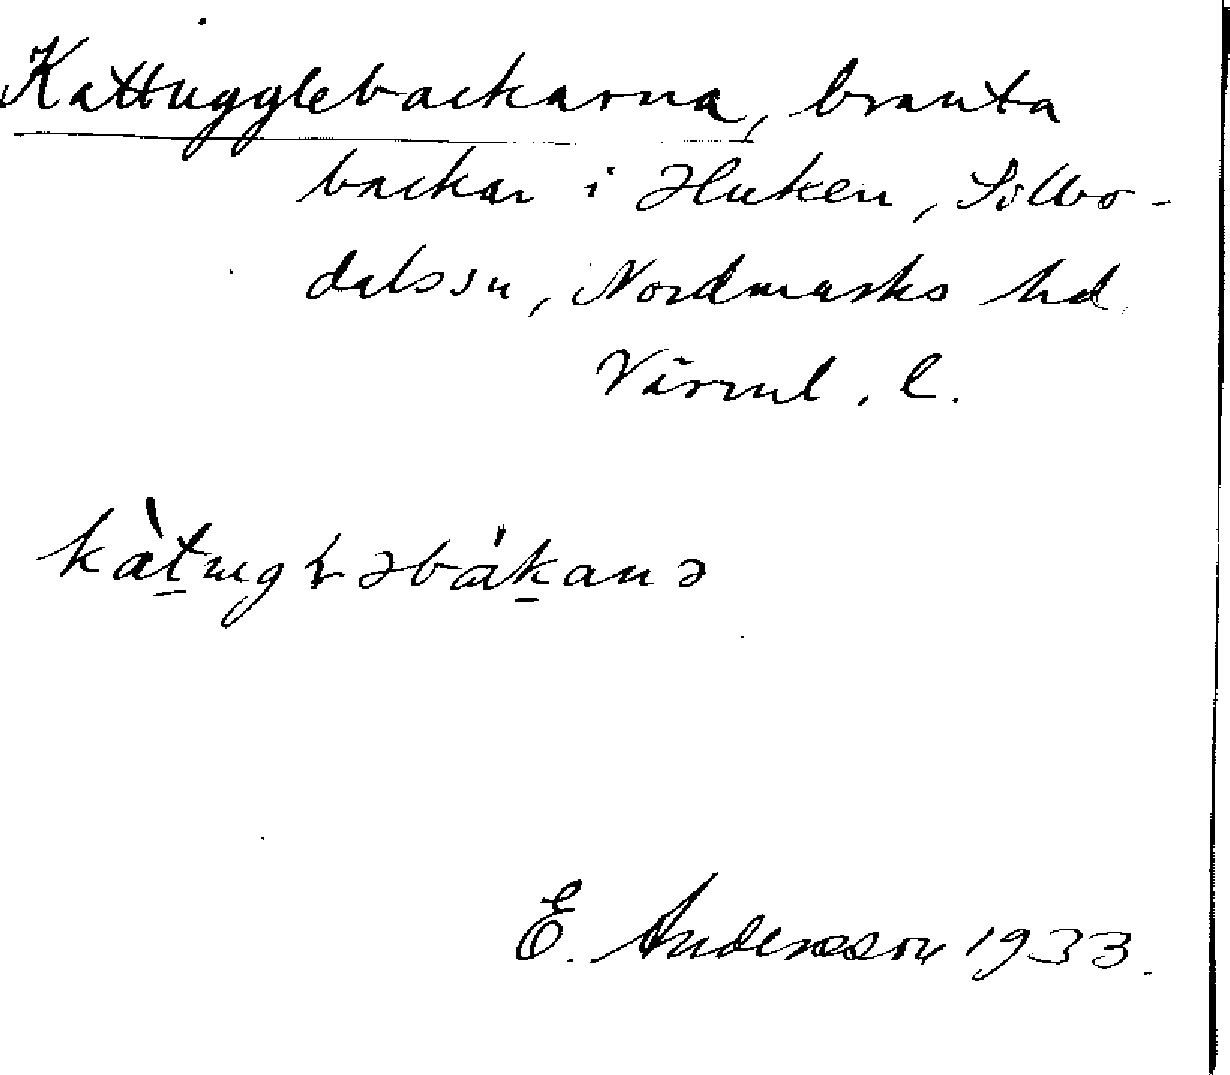 Kattugglebackarna, branta
backar i Huken, Sillbo-
dalssn, Nordmarks hd
Värml. l.
E. Andersson 1933.